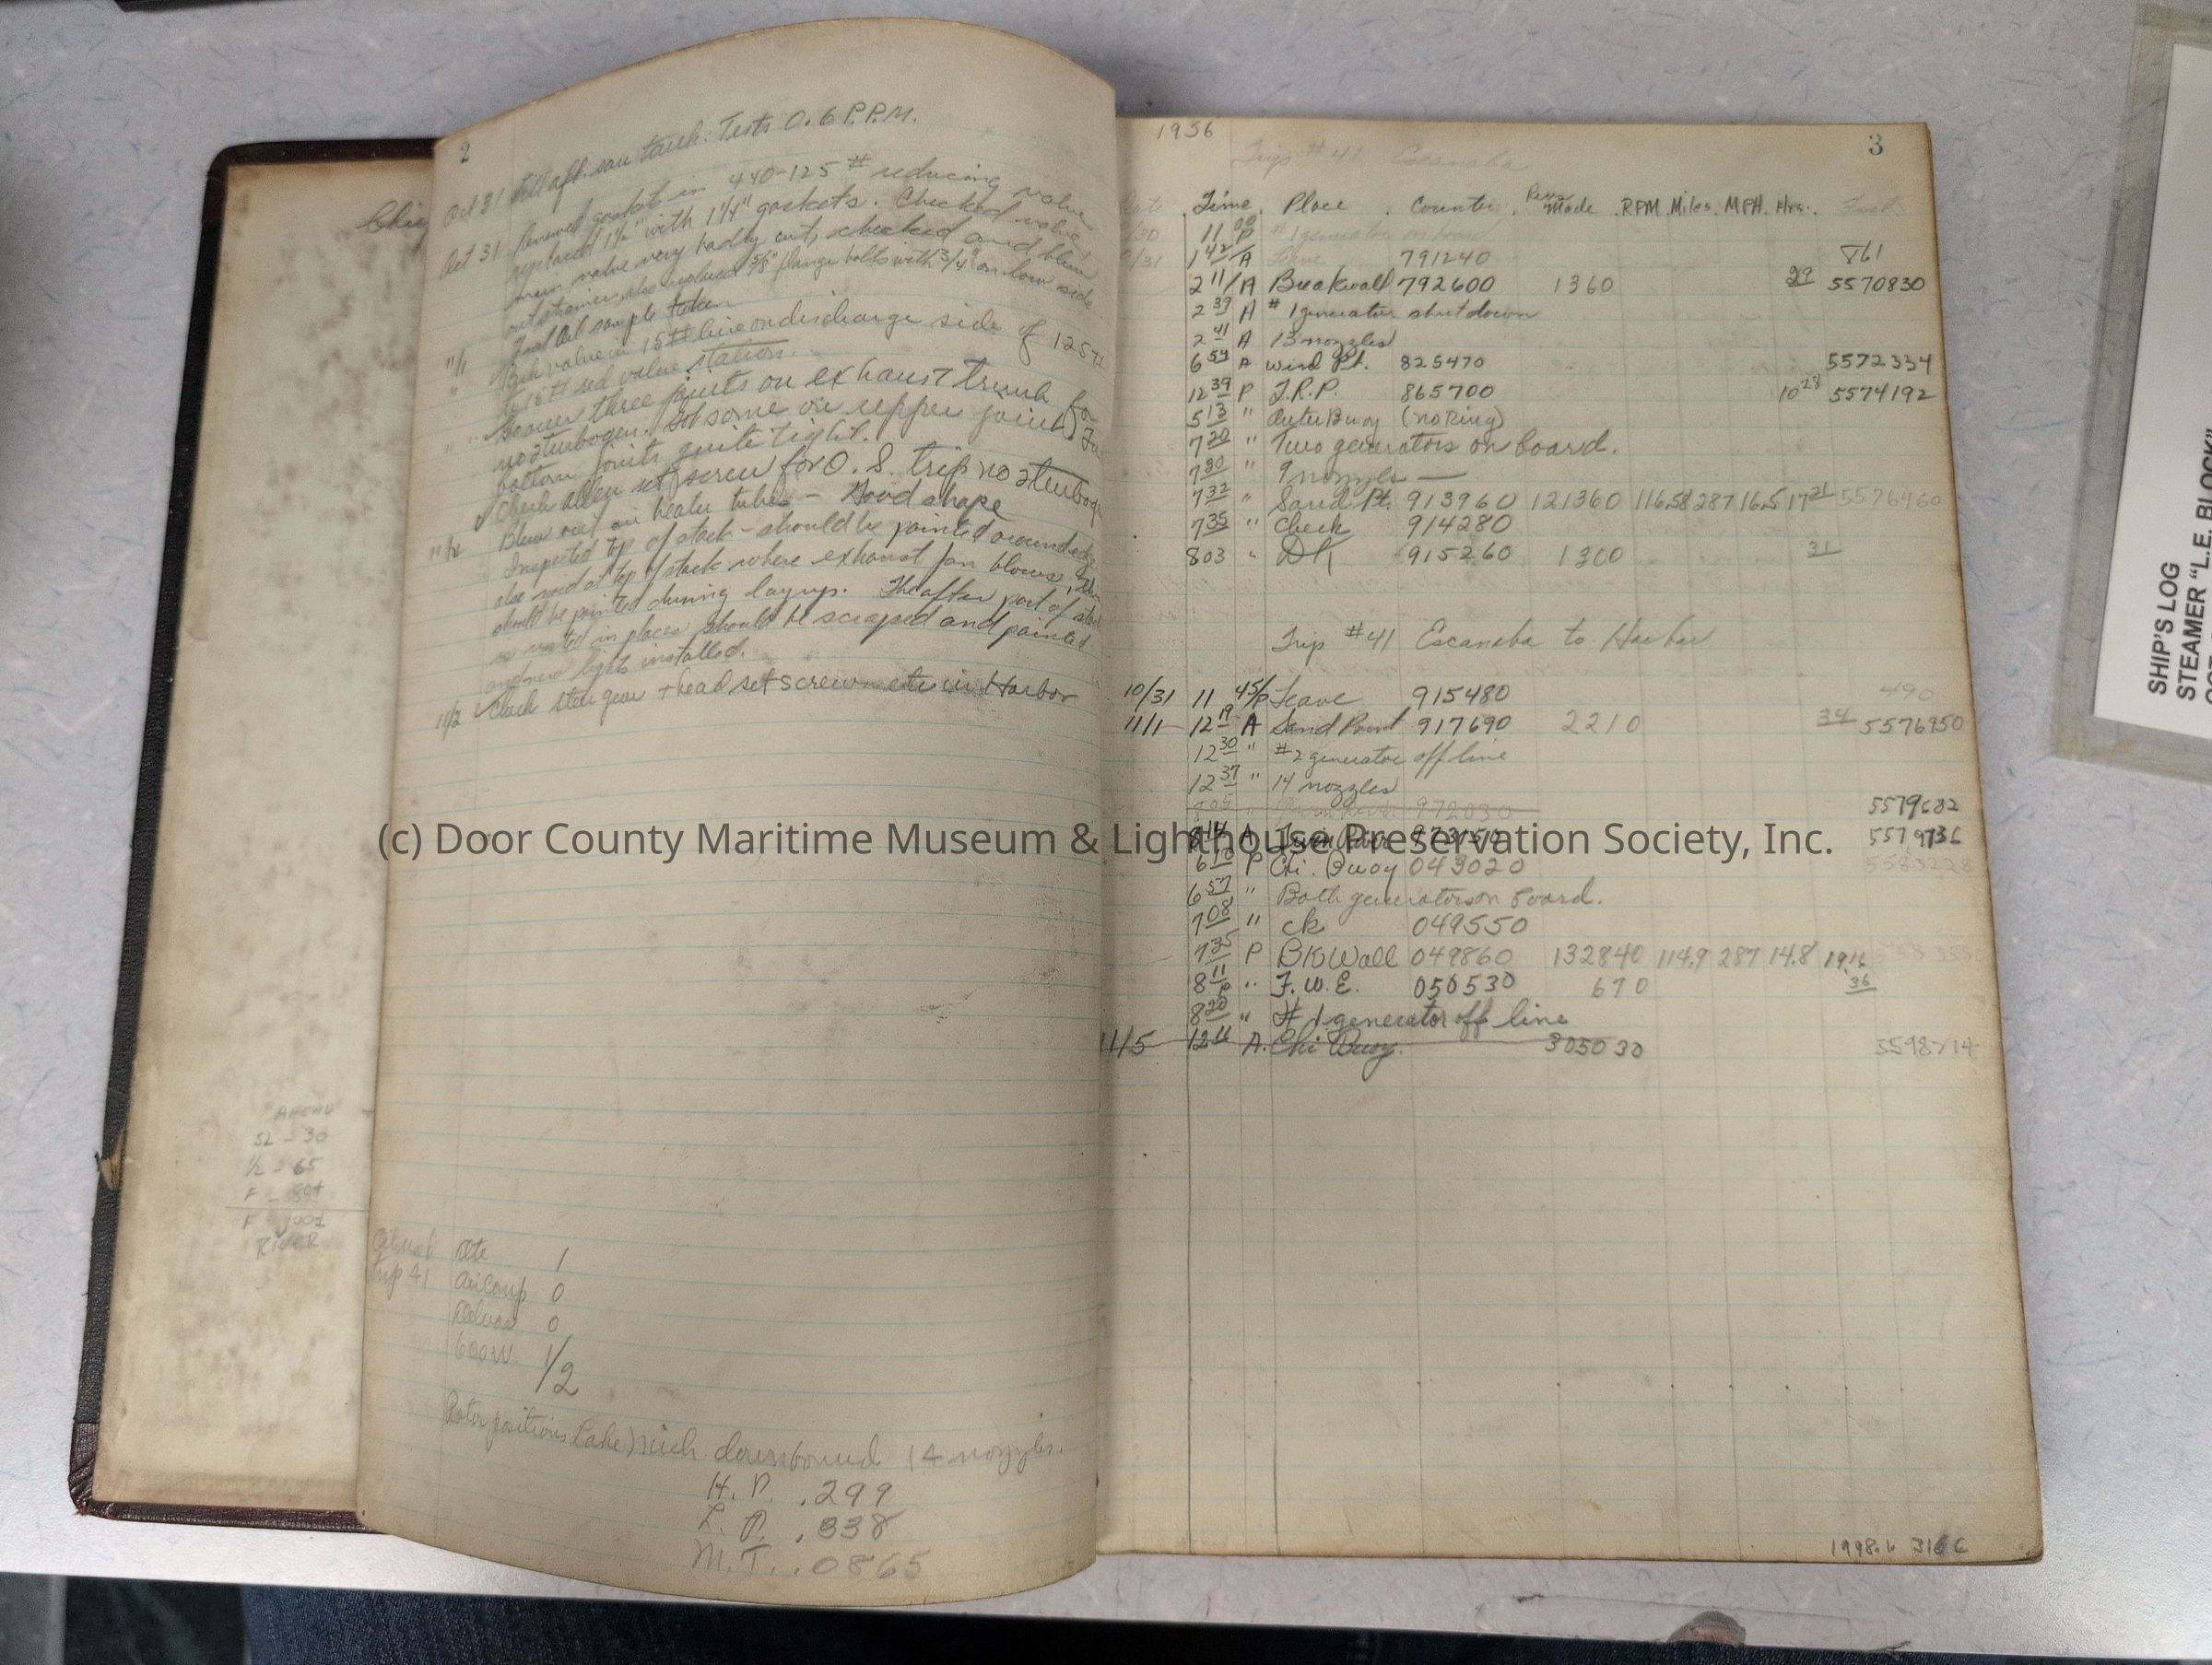 2
Oct 31 Fill aft. san tank. Tests 0.6 P.P.M.
Oct 31 Renewed gasket in 440-125 # reducing valve
replaced 1½" with 1¼" gaskets. Checked valve,
main valve very badly cut, checked and blew
out strainer, also replaced 5/8" flange bolts with 3/4" on low side.
11/1 Fuel Oil sample taken
" Pack valve in 15# line on discharge side of 125#
to 15# red valve station.
" " three joints on exhaust trunk for
no 2 turbogen. Got some on upper joint,
bottom joints quite tight.
✓ Check allen set screw for O.S. trip no 2 turbogen
Blew out air heater tubes - Good shape
11/2 Inspected top of stack - should be painted around edge
also at top of stack where exhaust fan blows,
should be painted during layup. The after part of stack
is rusted in places should be scraped and painted
and new lights installed.
11/2 ✓ Check steer gear + head set screw in Harbor
Chie
AHEAD
SL - 30
½ - 65
F -
F -
RIVER
trip 41
Dte 1
Air Comp 0
0
600W 1/2
Rotor positions Lake Mich. downbound 14 nozzles.
H. P. .299
L. P. .338
M.T. .0865
1956
3
Trip #41 Escanaba
Date Time Place Counter Revs Made RPM Miles MPH Hrs. Fuel
/30 11 00 P #1 generator on board
/31 1 42 A Leave 791240 861
2 11 A Breakwall 792600 1360 29 5570830
2 39 A #1 generator shutdown
2 41 A 13 nozzles
6 54 A Wind Pt. 825470 5572334
12 39 P T.R.P. 865700 10 28 5574192
5 13 " Outer Buoy (no Ring)
7 20 " Two generators on board.
7 30 " 9 nozzles —
7 32 " Sand Pt. 913960 121360 116.58 287 16.5 17 21 5576460
7 35 " Check 914280
8 03 " 915260 1300 31
Trip #41 Escanaba to Harbor
10/31 11 45/P Leave 915480 490
11/1 12 19 A Sand Point 917690 2210 34 5576950
12 30 " #2 generator off line
12 37 " 14 nozzles
8 05 " 972030 5579682
8 14 A Twin River 973150 5579736
6 10 P Chi. Buoy 043020 5583228
6 57 " Both generators on board.
7 08 " ck 049550
7 35 P BKWall 049860 132840 114.9 287 14.8 19 16
8 11 P " F.W.E. 050530 670 36
8 20 " # 1 generator off line
11/5 12 16 A. Chi Buoy. 305030 5598714
1998.6 316 C
SHIP'S LOG
STEAMER "L.E. BLOCK"
(c) Door County Maritime Museum & Lighthouse Preservation Society, Inc.